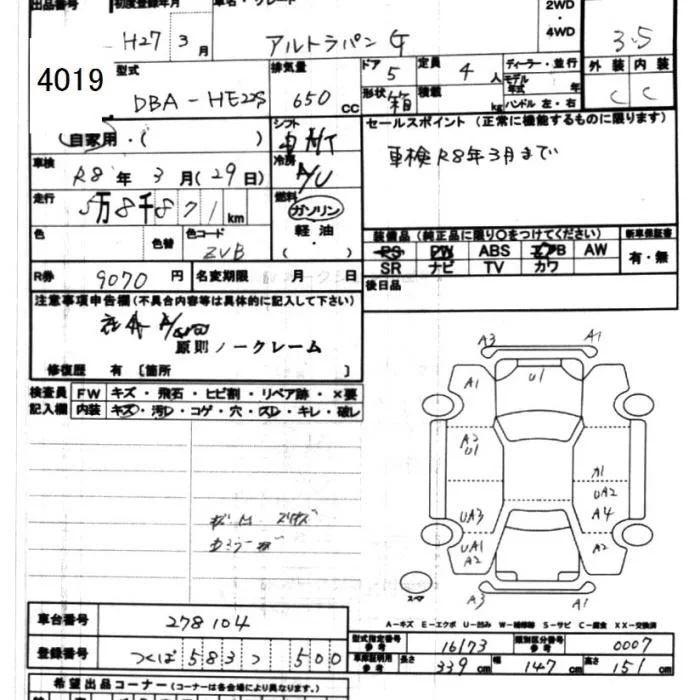 出品番号 初度登録年月
H27年3月 アルトラパン G
2WD・4WD 3.5
4019
型式 DBA-HE22S
排気量 650 cc
ドア 5 定員 4人
形状 箱 積載 kg
ディーラー・並行
モデル年式 年
ハンドル 左・右
外装 内装
C C
自家用・( )
シフト
冷房
セールスポイント (正常に機能するものに限ります)
車検R8年3月まで
車検 R8年3月(29日)
走行 5万8千871km
燃料 ガソリン
軽油
( )
色 色替 色コード ZVB
装備品 (純正品に限り○をつけてください) 新車保証書
PS PW ABS AB AW 有・無
SR ナビ TV カワ
R券 9070円 名変期限 月 日
後日品
注意事項申告欄(不具合内容等は具体的に記入して下さい)
原則ノークレーム
修復歴 有 [箇所 ]
検査員記入欄 FW キズ・飛石・ヒビ割・リペア跡・×要
内装 キズ・汚レ・コゲ・穴・スレ・キレ・破レ
A3 A1
A1 U1
A2 U1
A1
UA2
UA3 A4
UA1 A2 A2
A3 A1
スマ
A-キズ E-エクボ U-凹み W-補修跡 S-サビ C-腐食 XX-交換済
車台番号 278104
登録番号 つくば 583 つ 500
型式指定番号 参考 16173 類別区分番号 参考 0007
車庫証明用 参考 長さ 339cm 幅 147cm 高さ 151cm
希望出品コーナー(コーナーは各会場により異なります。)